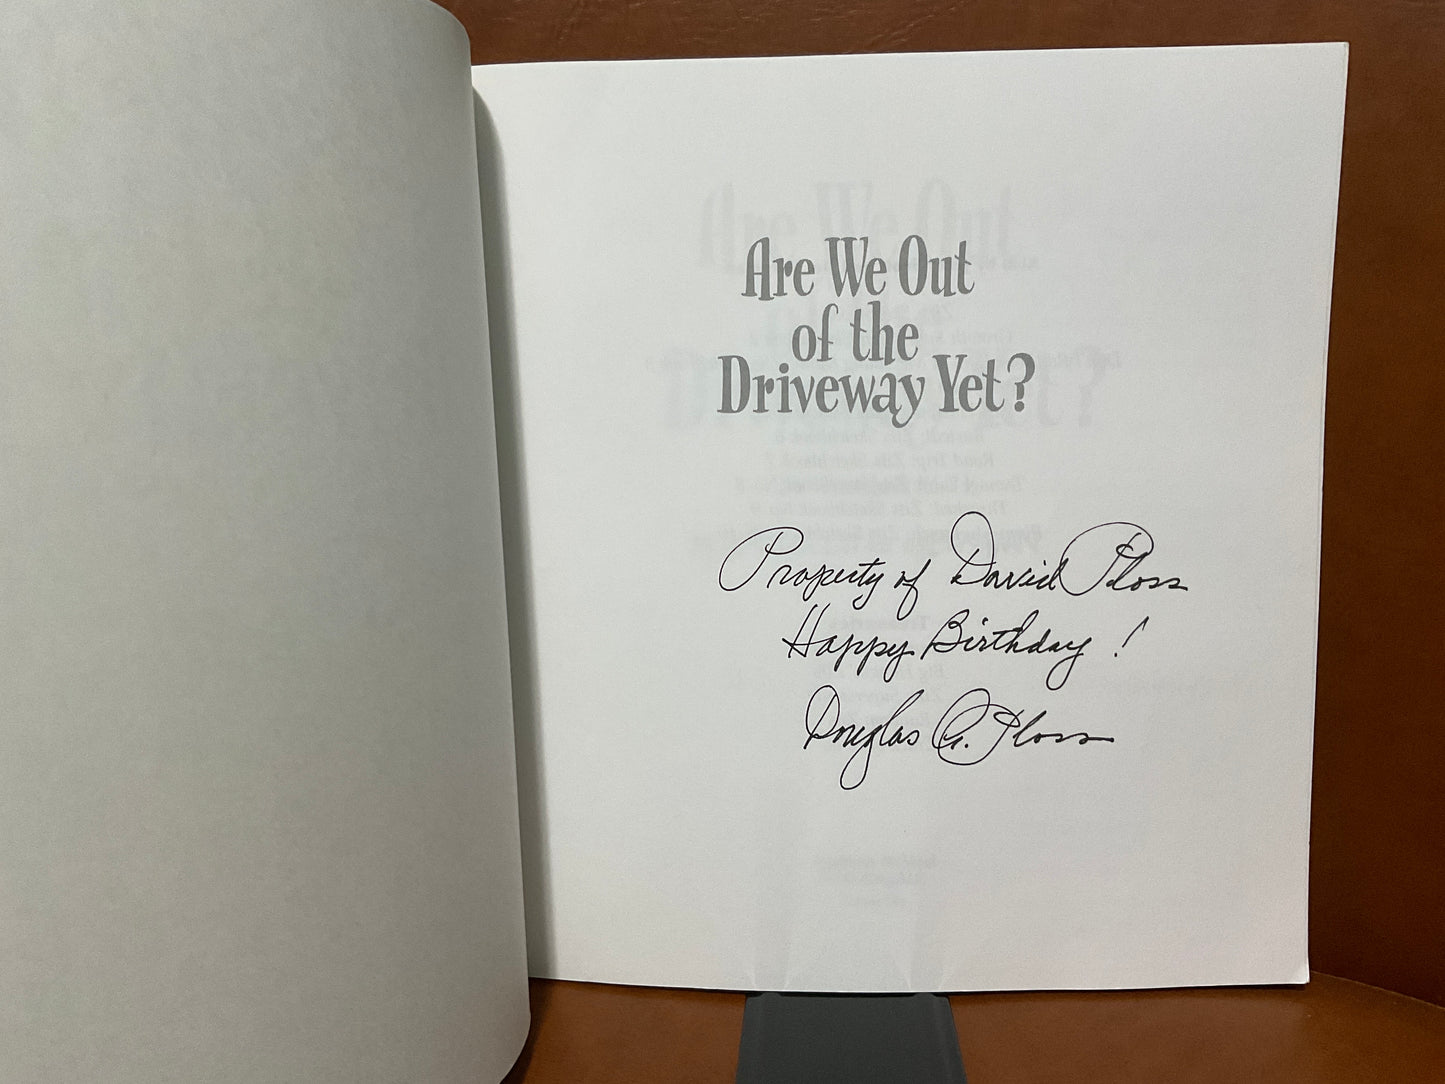 Are We Out
of the
Driveway Yet?
Property of David Ploss
Happy Birthday !
Douglas G. Ploss